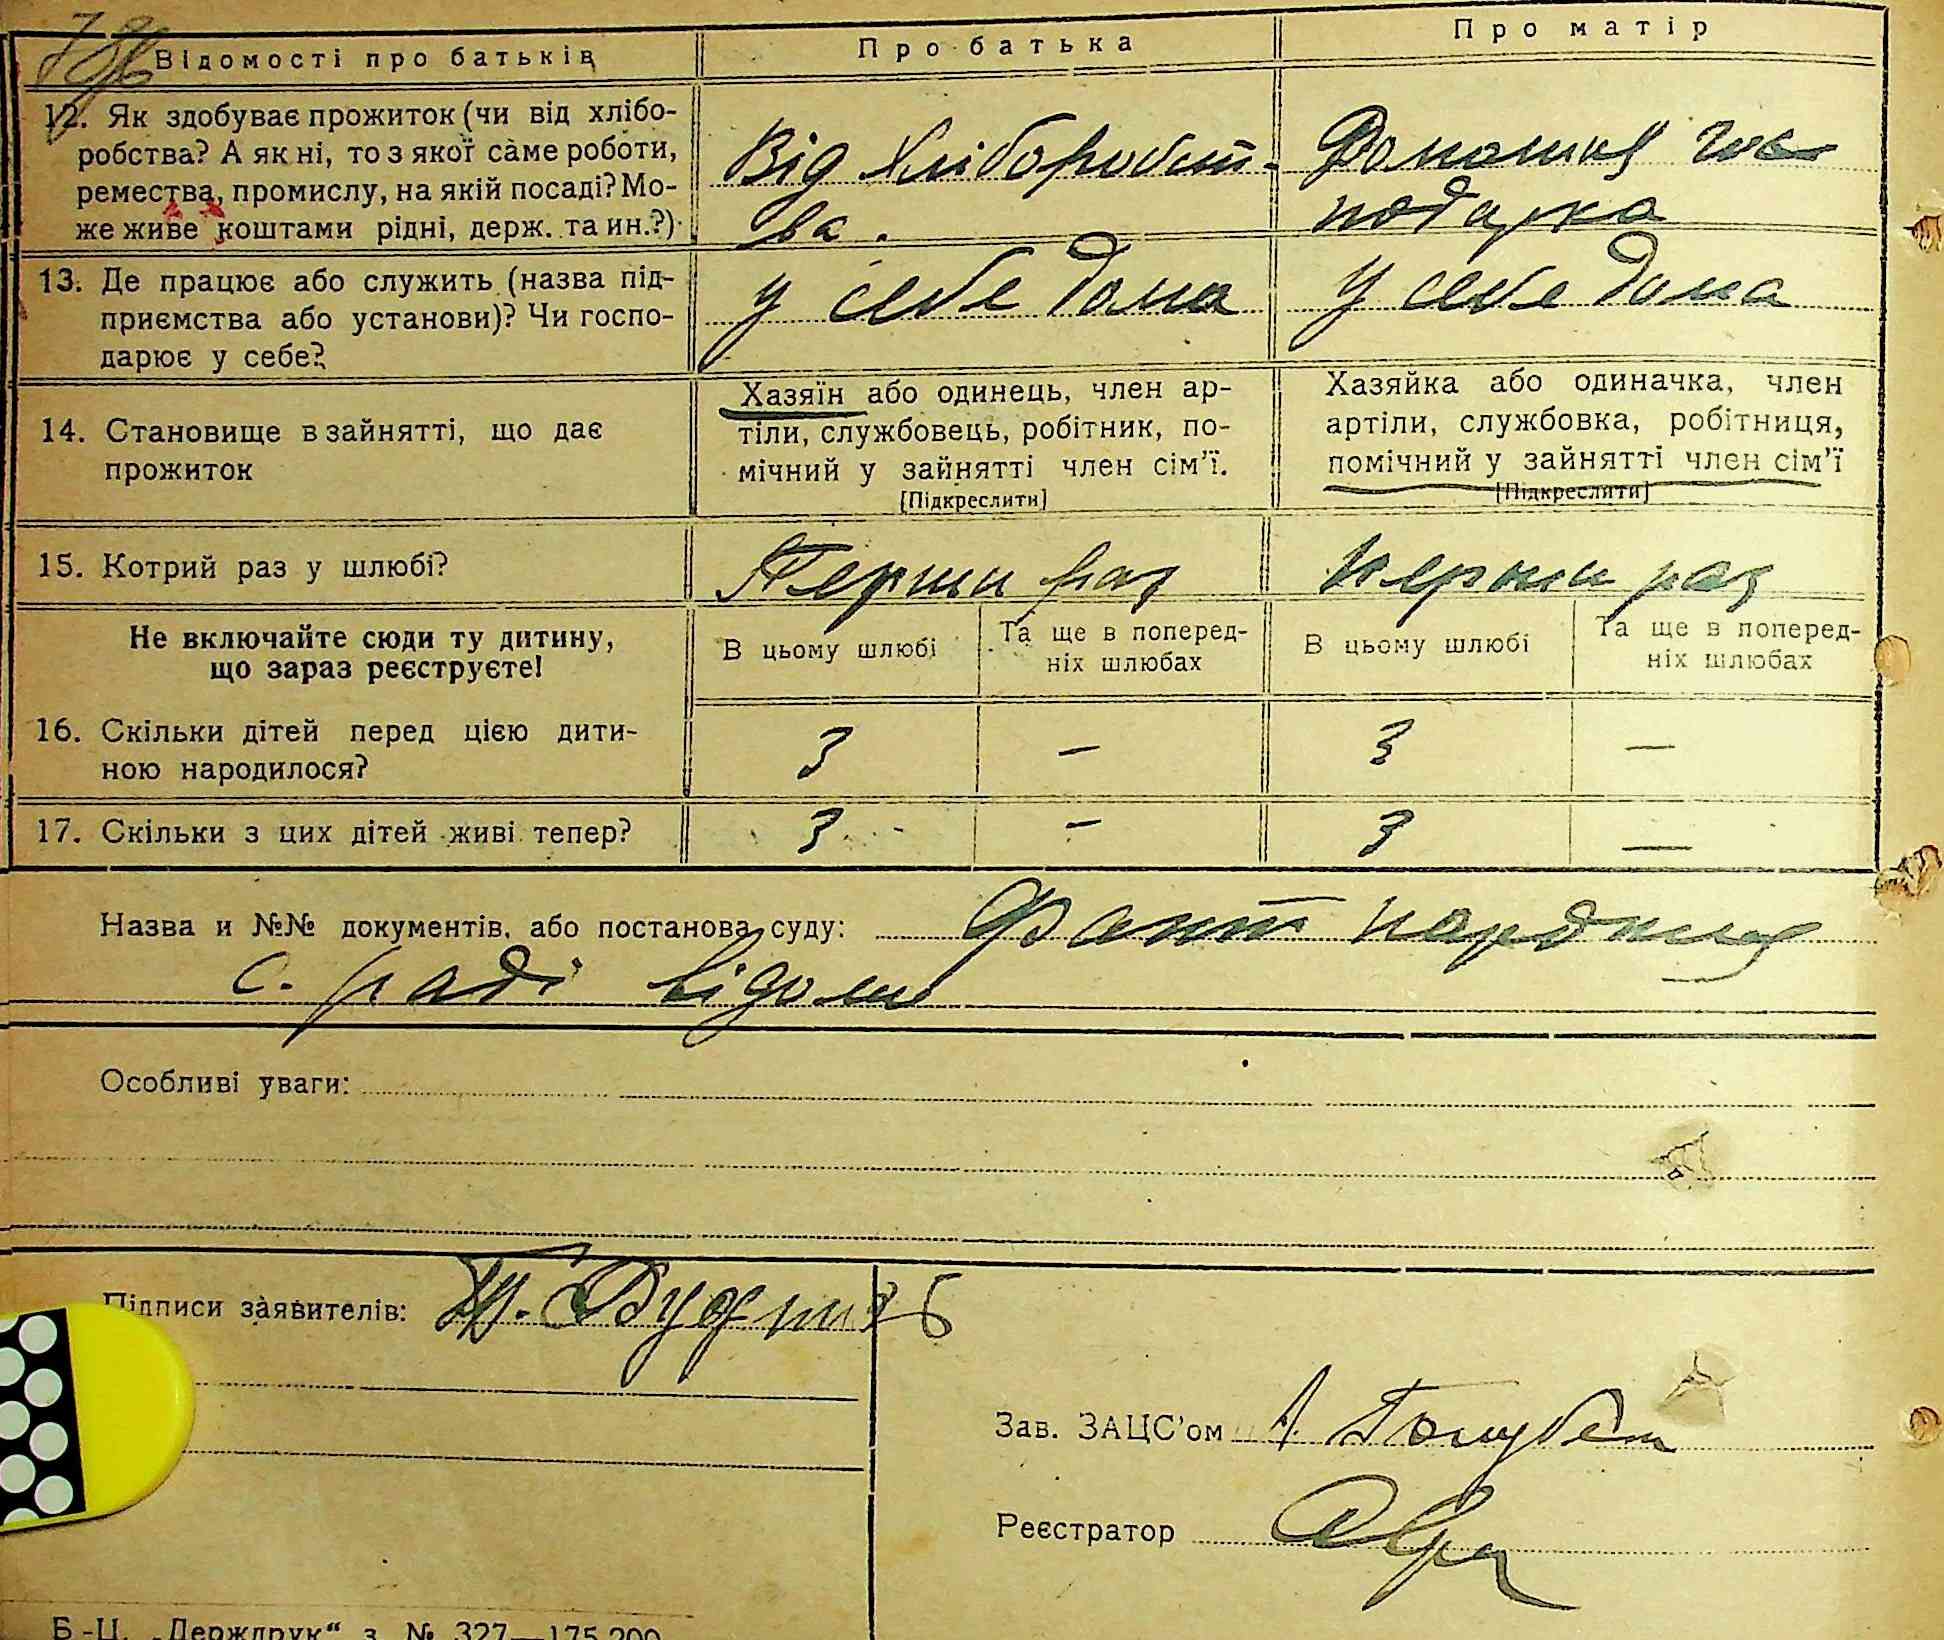 Відомості про батьків
Про батька
Про матір
12. Як здобуває прожиток (чи від хлібо-
робства? А як ні, то з якої саме роботи,
ремества, промислу, на якій посаді? Мо-
же живе коштами рідні, держ. та ин.?)
Від Хліборобст-
ва.
Домашня гос-
подарка
13. Де працює або служить (назва під-
приємства або установи)? Чи госпо-
дарює у себе?
у себе дома
у себе дома
14. Становище в зайнятті, що дає
прожиток
Хазяїн або одинець, член ар-
тіли, службовець, робітник, по-
мічний у зайнятті член сім'ї.
[Підкреслити]
Хазяйка або одиначка, член
артіли, службовка, робітниця,
помічний у зайнятті член сім'ї
[Підкреслити]
15. Котрий раз у шлюбі?
Перши раз
перши раз
Не включайте сюди ту дитину,
що зараз реєструєте!
В цьому шлюбі
Та ще в поперед-
ніх шлюбах
В цьому шлюбі
Та ще в поперед-
ніх шлюбах
16. Скільки дітей перед цією дити-
ною народилося?
3 – 3 —
17. Скільки з цих дітей живі тепер?
3 – 3 —
Назва и №№ документів, або постанова суду: Факт народження
с. раді відоми
Особливі уваги:
Підписи заявителів:
Зав. ЗАЦС'ом
Реєстратор
Б-Ц. „Держдрук“ з. № 327—175.200